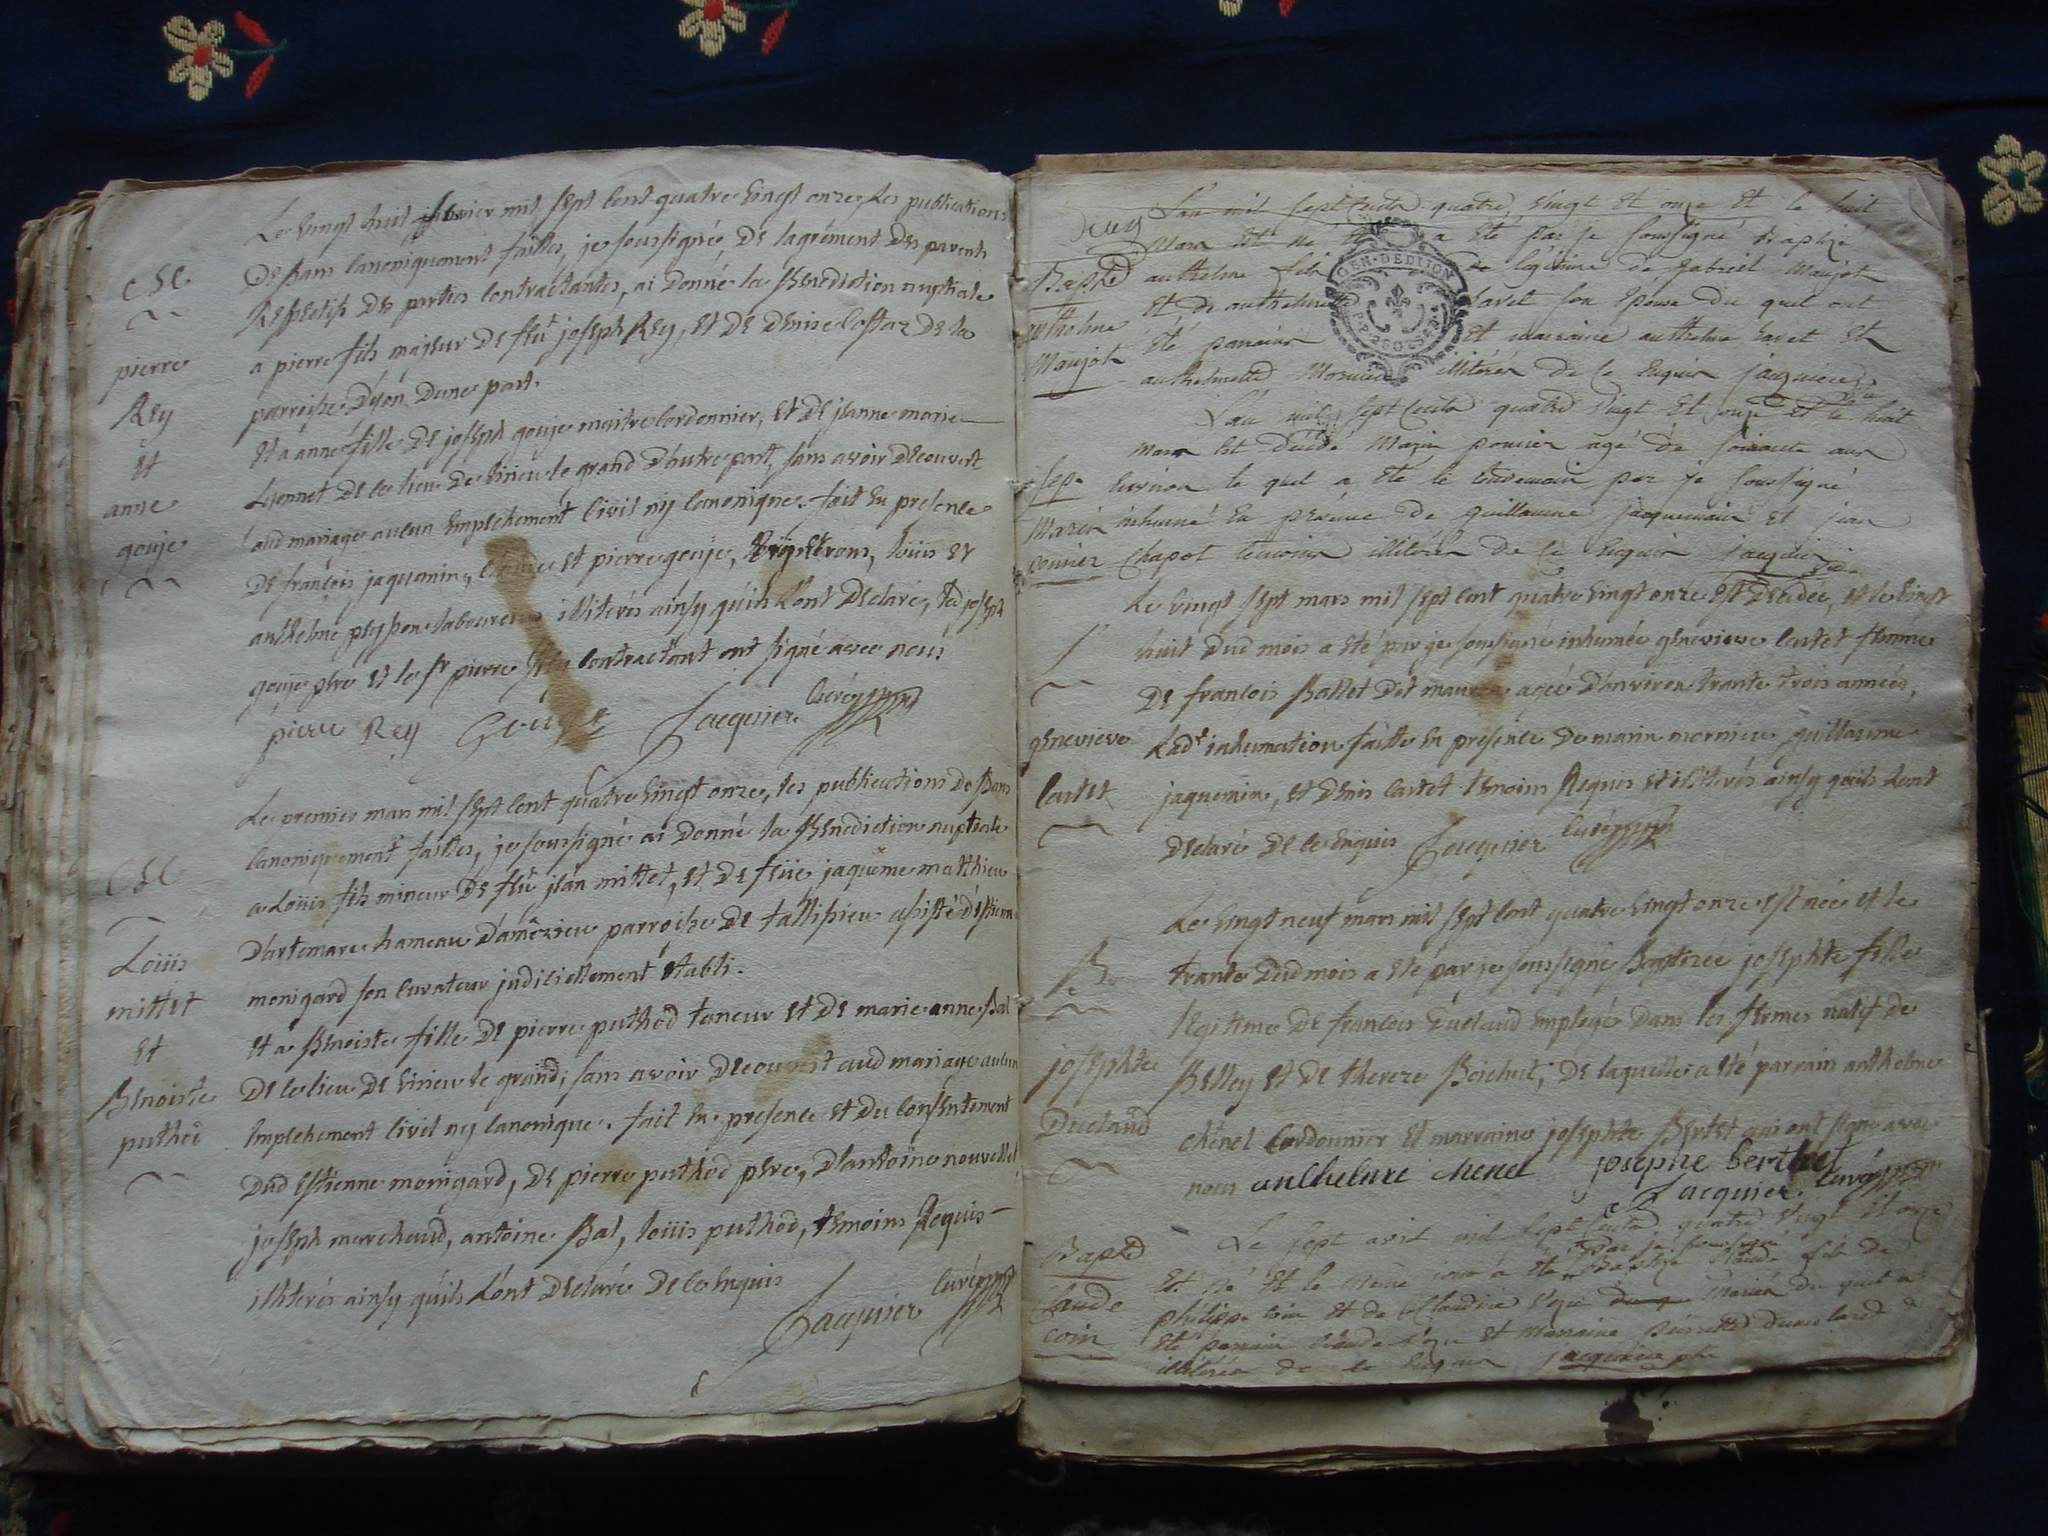 Le vingt huit janvier mil sept cent quatre vingt onze, les publications
De Bans canoniquement faittes, je soussigné, De lagrément Des parents
Respectifs Des parties contractantes, ai Donné la Benediction nuptiale
a pierre fils majeur De feû joseph Rey, et De Denise De la
parroisse Dyon Dune part.
Et a anne fille De joseph gouje maitre cordonnier, et De jeanne marie
De ce lieu De virieu le grand D'autre part, sans avoir Decouvert
aud mariage aucun Empechement civil nÿ canonique. fait En presence
De françois jaquemin, et pierre gouje, Louis et
anthelme peysson laboureurs illiterés ainsy quils L'ont Declaré, Led joseph
gouje pere et le sr pierre Rey contractant ont signé avec nous
pierre Rey Gouge Jacquier curé
ese
pierre
Rey
et
anne
gouje
Le premier mars mil sept cent quatre vingt onze, les publications De Bans
canoniquement faittes, je soussigné ai Donné la Benediction nuptiale
a Louis fils mineur De feû jean mittet, et De feüe jaqueme matthieu
D'artemare hameau D'amëzieu parroisse De tallissieu assisté D'estienne
monigard son curateur judiciellement Etabli.
Et a Benoiste fille De pierre puthod teneur Et De marie anne Bal
De ce lieu De virieu le grand, sans avoir Decouvert aud mariage aucun
Empechement civil ny canonique. fait En presence Et Du consentement
Dud Estienne monigard, De pierre puthod pere, D'antoine nouvellet
joseph marchand, antoine Bal, Louis puthod, temoins Requis
illiterés ainsy quils L'ont Declaré De ce Enquis
Jacquier curé
ese
Louis
mittet
Et
Benoiste
puthod
L'an mil sept cents quatre vingt et onze et le huit
Mars est né a été par je soussigné Baptizé
anthelme fils légitime de gabriel Maujot
Et de anthelmette Favet son Epouse du quel ont
été parrain Et marraine anthelme Favet Et
anthelmette illitérés De ce Enquis jacquier
Bapt
anthelme
Maujot
GEN. DEDIJON
L'an mil sept cents quatre vingt et onze et le huit
Mars est décédé Marin ponnier agé de soixante ans
Environ le quel a été le lendemain par je soussigné
inhumé En présence de guillaume jacquemain et jean
Chapot temoins illiterés De ce Enquis jacquier
Sep.
Marin
ponnier
Le vingt sept mars mil sept cent quatre vingt onze est Decédée, et le vingt
huit Dud mois a eté par je soussigné inhumée genevieve cartet femme
De francois Ballet Dit agée D'environ trante trois années,
Lade inhumation faitte En présence De marin mornieu guillaume
jaquemin, et Denis cartet temoins Requis et illiterés ainsy quils L'ont
Declaré De ce Enquis Jacquier curé
S
genevieve
cartet
Le vingt neuf mars mil sept cent quatre vingt onze est née et le
trante Dud mois a eté par je soussigné Baptizée josephte fille
legitime De francois Duclaud Employé Dans les fermes natif De
Belley et De therese De laquelle a eté parrain anthelme
chenel cordonnier et marraine josephte Bertet qui ont signé avec
nous anthelme chenel josephe bertet
Jacquier curé
B
josephte
Duclaud
Le sept avril mil sept cents quatre vingt et onze
Est né Et le même jour a été par je soussigné Baptizé Claude fils de
philippe coin et de Claudine mariés du quel a
été parrain Claude et Marraine pierrette Dumolard
illitérés de ce Enquis jacquier
Bapt
Claude
coin